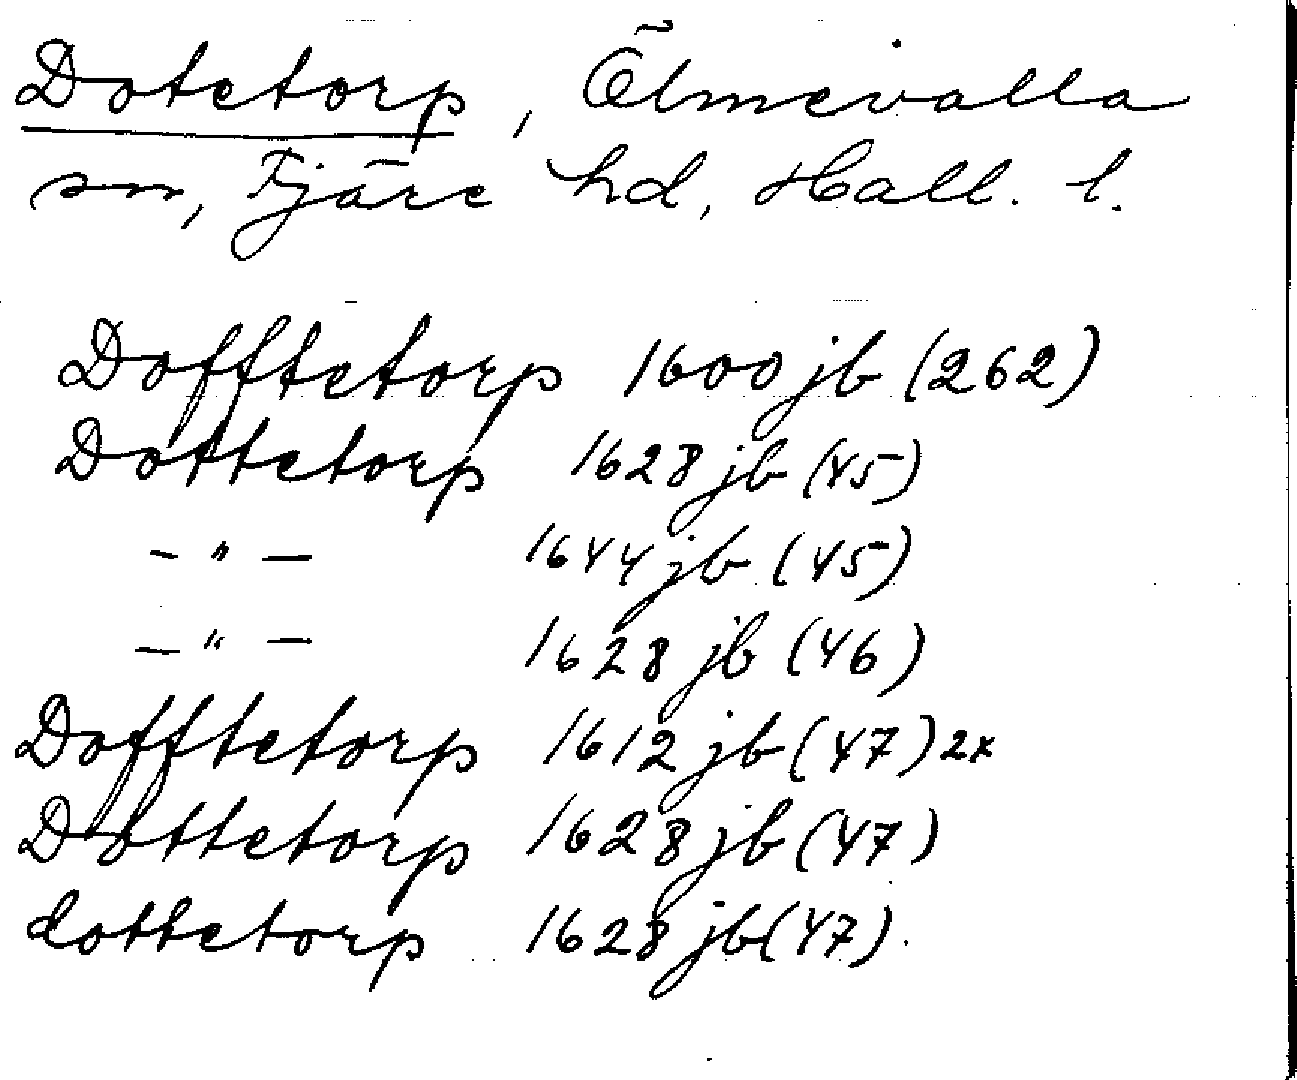 Dotetorp, Ölmevalla
sn, Fjäre hd, Hall. l.
Dofftetorp 1600 jb (262)
Dottetorp 1628 jb (45)
— " — 1644 jb (45)
— " — 1628 jb (46)
Dofftetorp 1612 jb (47) 2x
Dottetorp 1628 jb (47)
dottetorp 1628 jb (47).